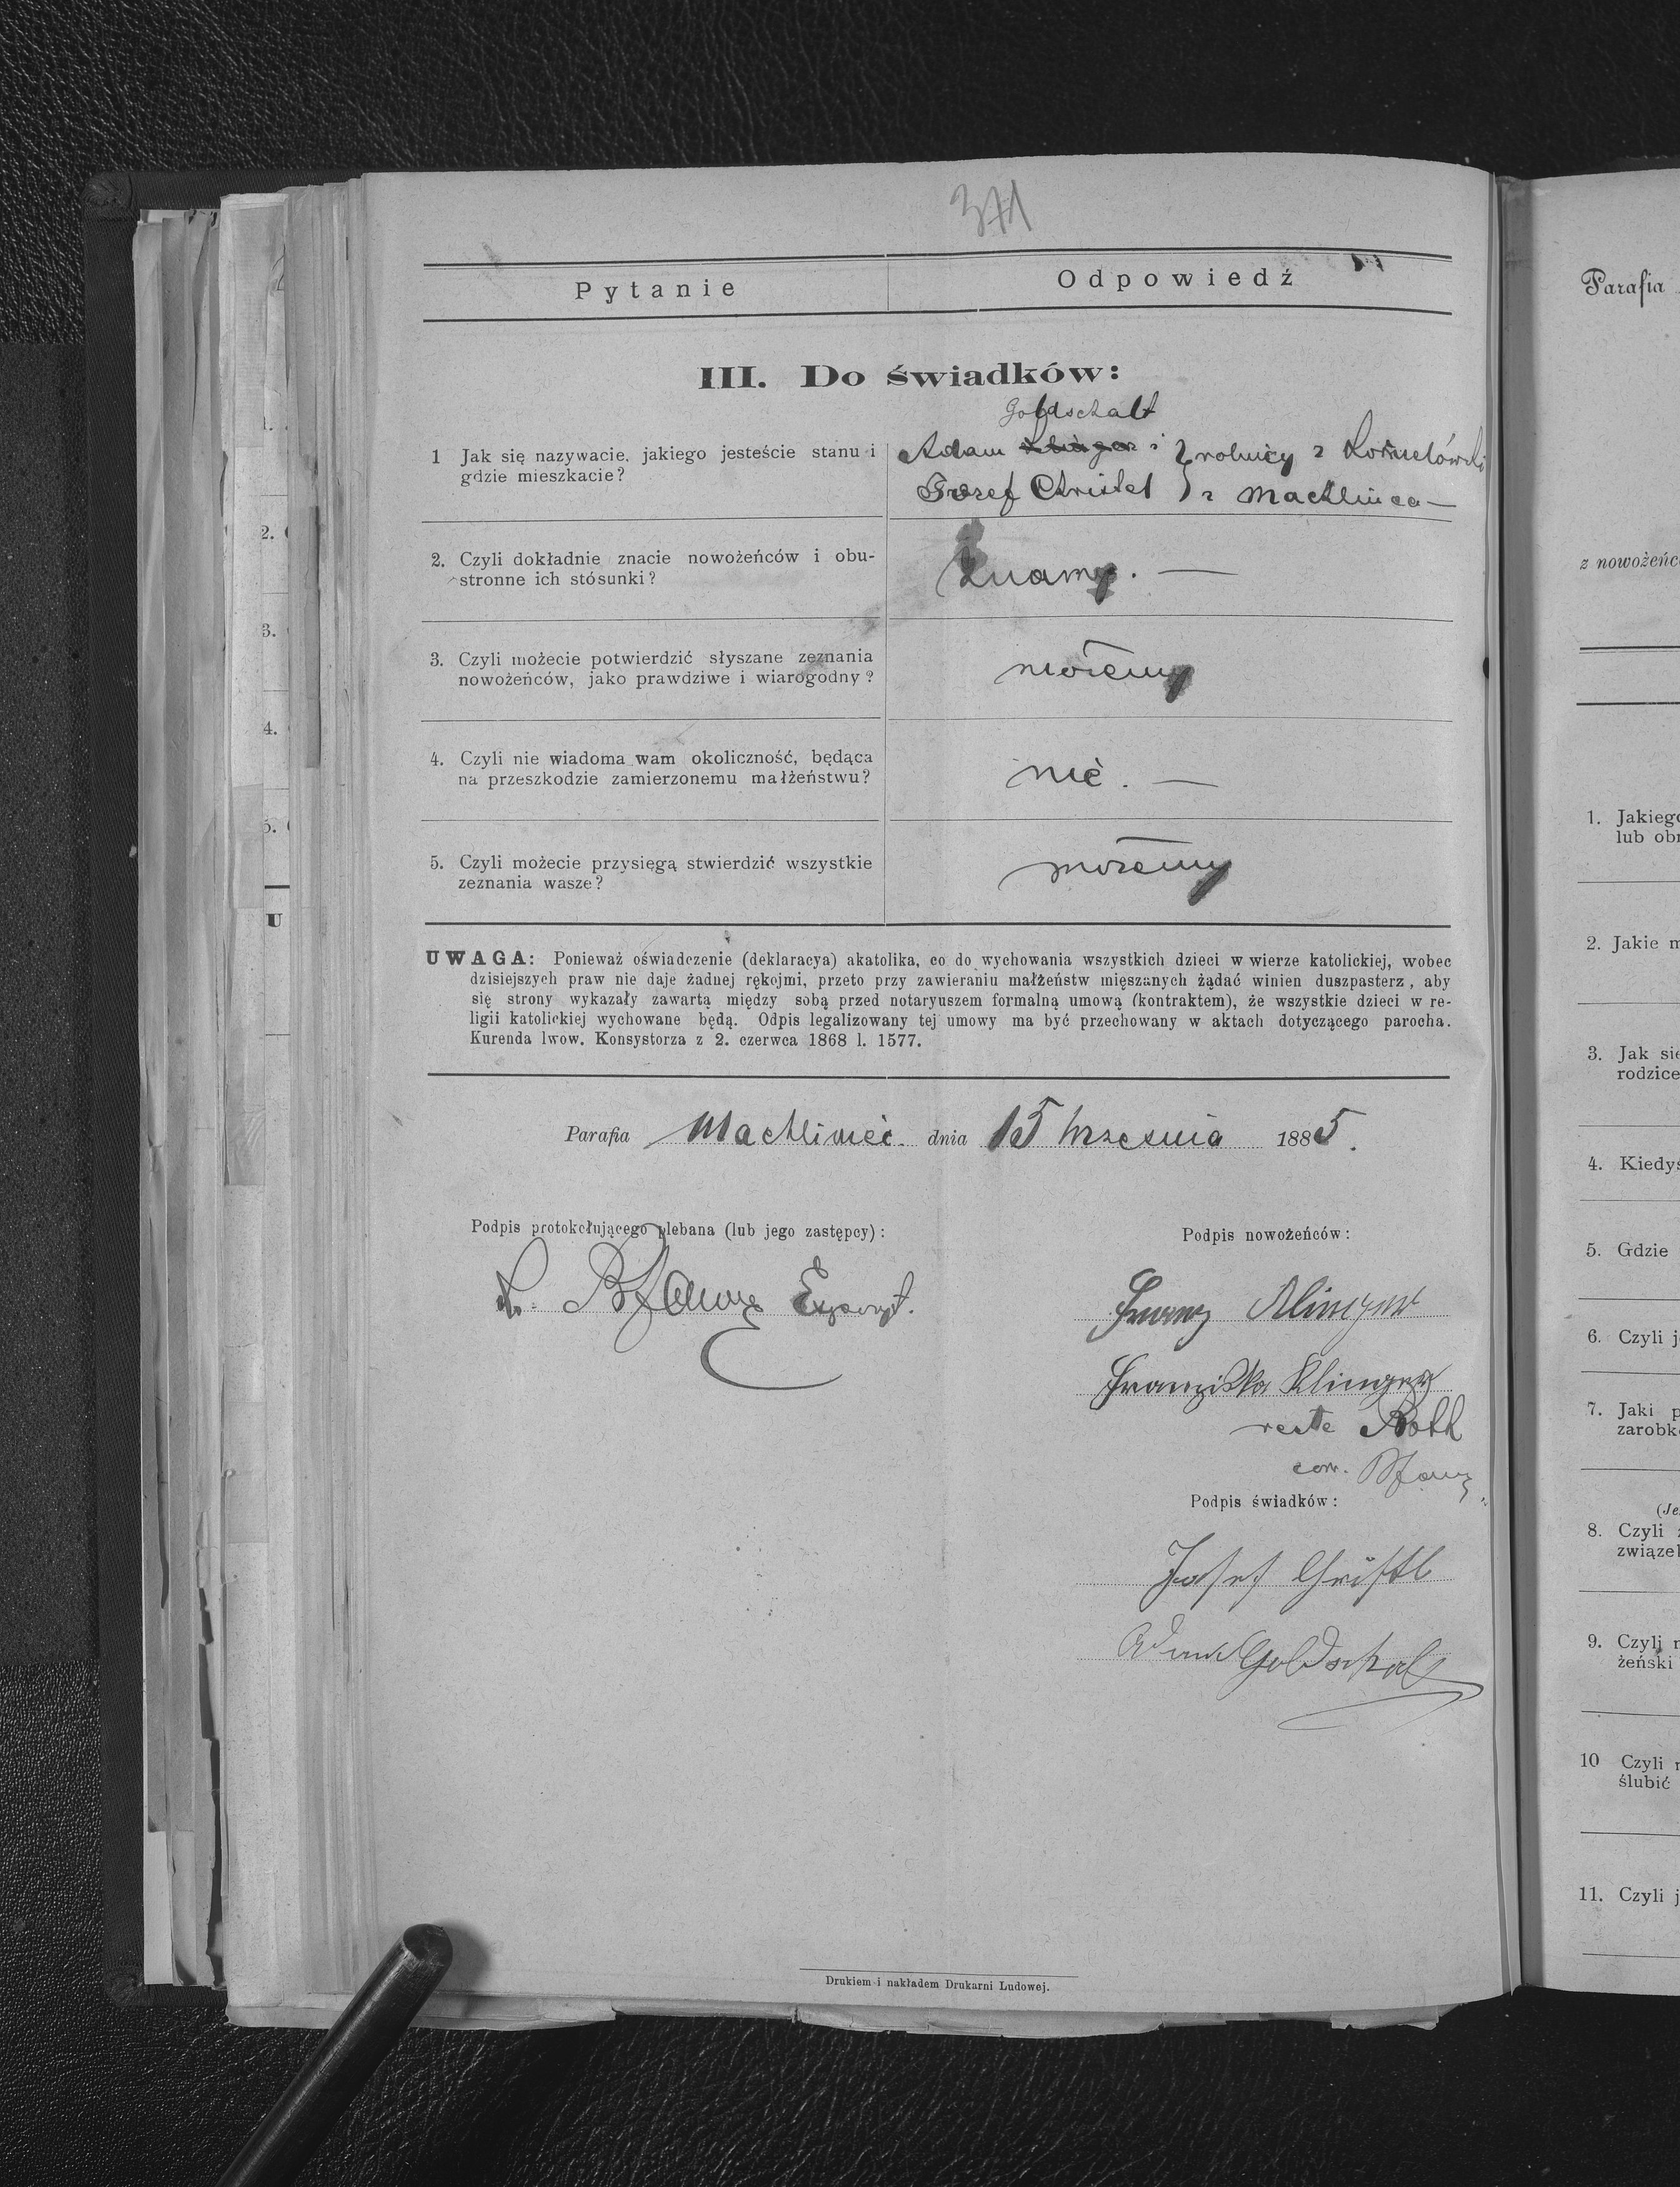 371
Pytanie
Odpowiedź
III. Do świadków:
Goldschalt
1 Jak się nazywacie, jakiego jesteście stanu i
gdzie mieszkacie?
Adam Klinger i } rolnicy z Kornelówki
Józef Christel } z Machlińca —
2. Czyli dokładnie znacie nowożeńców i obu-
stronne ich stósunki?
Znamy. —
3. Czyli możecie potwierdzić słyszane zeznania
nowożeńców, jako prawdziwe i wiarogodny?
możemy
4. Czyli nie wiadoma wam okoliczność, będąca
na przeszkodzie zamierzonemu małżeństwu?
nié. —
5. Czyli możecie przysięgą stwierdzić wszystkie
zeznania wasze?
możemy
UWAGA: Ponieważ oświadczenie (deklaracya) akatolika, co do wychowania wszystkich dzieci w wierze katolickiej, wobec
dzisiejszych praw nie daje żadnej rękojmi, przeto przy zawieraniu małżeństw mięszanych żądać winien duszpasterz, aby
się strony wykazały zawartą między sobą przed notaryuszem formalną umową (kontraktem), że wszystkie dzieci w re-
ligii katolickiej wychowane będą. Odpis legalizowany tej umowy ma być przechowany w aktach dotyczącego parocha.
Kurenda lwow. Konsystorza z 2. czerwca 1868 l. 1577.
Parafia Machliniéc dnia 15 Września 1885.
Podpis protokołującego plebana (lub jego zastępcy):
Podpis nowożeńców:
Franz Klinger
Franziska Klinger
recte Roth
Podpis świadków:
Josef Christl
Adam Goldschalt
Drukiem i nakładem Drukarni Ludowej.
1.
2.
3.
4.
5.
U
Parafia
z nowożeńc
1. Jakieg
lub ob
2. Jakie m
3. Jak si
rodzice
4. Kiedy
5. Gdzie
6. Czyli j
7. Jaki p
zarobk
(Je
8. Czyli
związe
9. Czyli n
żeński
10 Czyli
ślubić
11. Czyli j